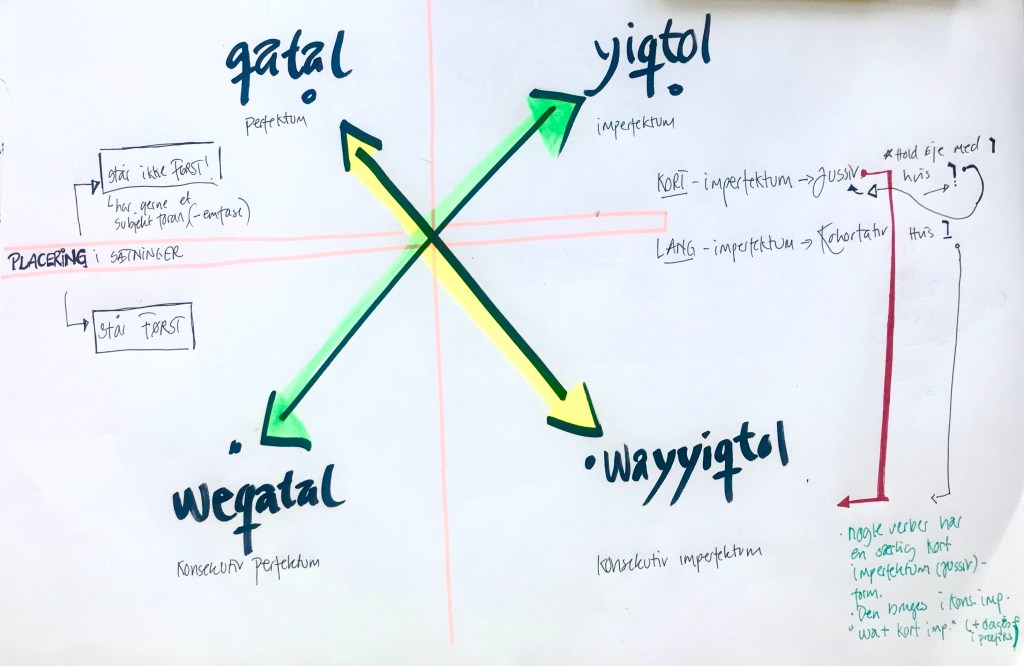 qatal
perfektum
yiqtol
imperfektum
står ikke FØRST!
har gerne et
subjekt foran (-emfase)
PLACERING i SÆTNINGER
står FØRST
*Hold øje med ו
KORT - imperfektum → Jussiv hvis
LANG - imperfektum → Kohortativ Hvis
weqatal
Konsekutiv perfektum
wayyiqtol
Konsekutiv imperfektum
· nogle verber har
en særlig kort
imperfektum (jussiv) -
form.
· Den bruges i kons. imp.
"wa + kort imp." (+ dagesf
i præfiks)